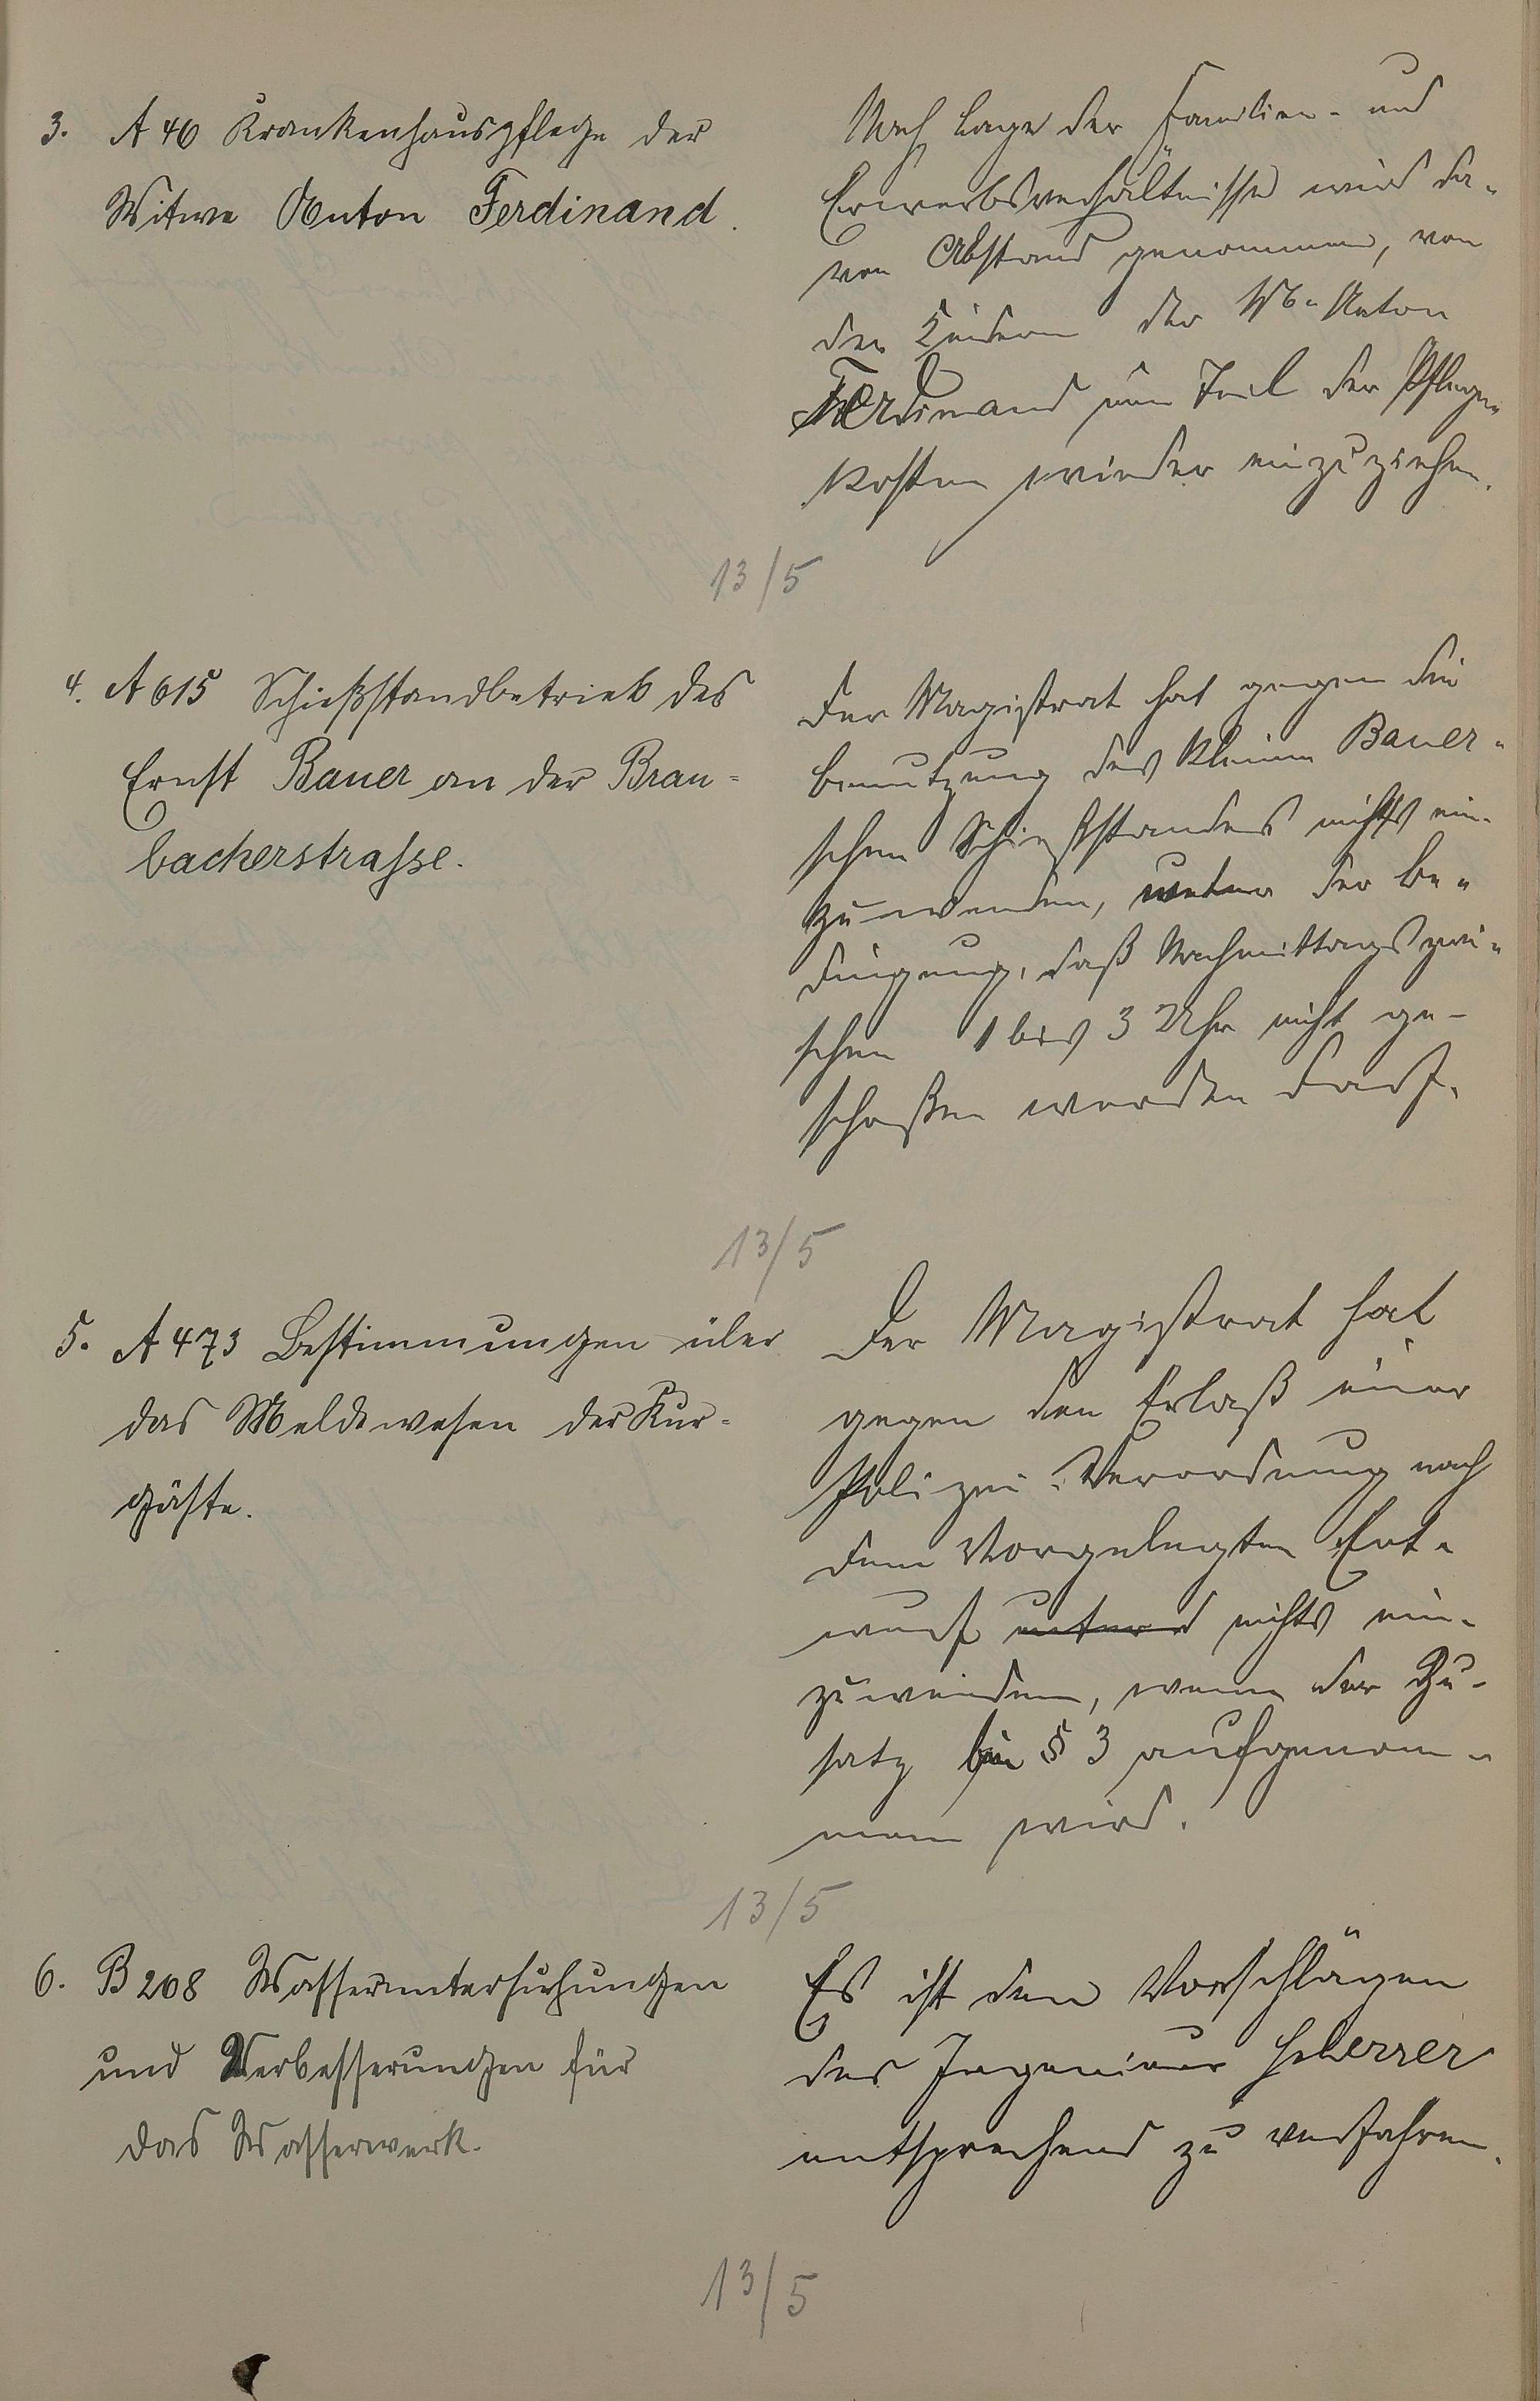 3. A 46 Krankenhauspflege der
Witwe Anton Ferdinand.
Nach Lage der Familien- und
Erwerbsverhältnisse wird da-
von Abstand genommen, von
den Kindern der Wb. Anton
Ferdinand ein Teil der Pflege-
kosten wieder einzuziehen.
13/5
4. A 615 Schießstandbetrieb des
Ernst Bauer an der Brau-
bacherstrasse.
Der Magistrat hat gegen die
Benutzung des kleinen Bauer-
schen Schießstandes nichts ein-
zuwenden, unter der Be-
dingung, daß Nachmittags zwi-
schen 1 bis 3 Uhr nicht ge-
schoßen werden darf.
13/5
5. A 473 Bestimmungen über
das Meldewesen der Kur-
gäste.
Der Magistrat hat
gegen den Erlaß einer
Polizei-Verordnung nach
dem vorgelegten Ent-
wurf nichts ein-
zuwenden, wenn der Zu-
satz bei § 3 aufgenom-
men wird.
13/5
6. B 208 Wasseruntersuchungen
und Verbesserungen für
das Wasserwerk.
Es ist den Vorschlägen
des Ingenieur Scherrer
entsprechend zu verfahren.
13/5